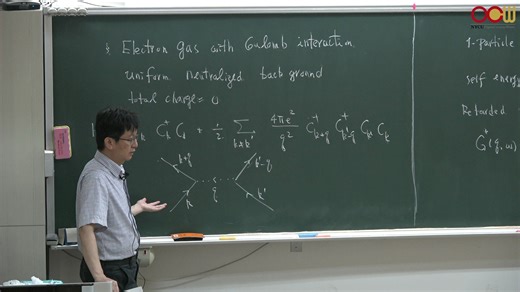 § Electron gas with Coulomb interaction
uniform neutralized background
total charge = 0
C_k^+ C_k + 1/2 Σ_{kk'} 4πe²/q² C_{k+q}^+ C_{k'-q}^+ C_{k'} C_k
k+q
k'-q
q
k
k'
1-particle
self energy
Retarded
G^+(q, ω)
OCW